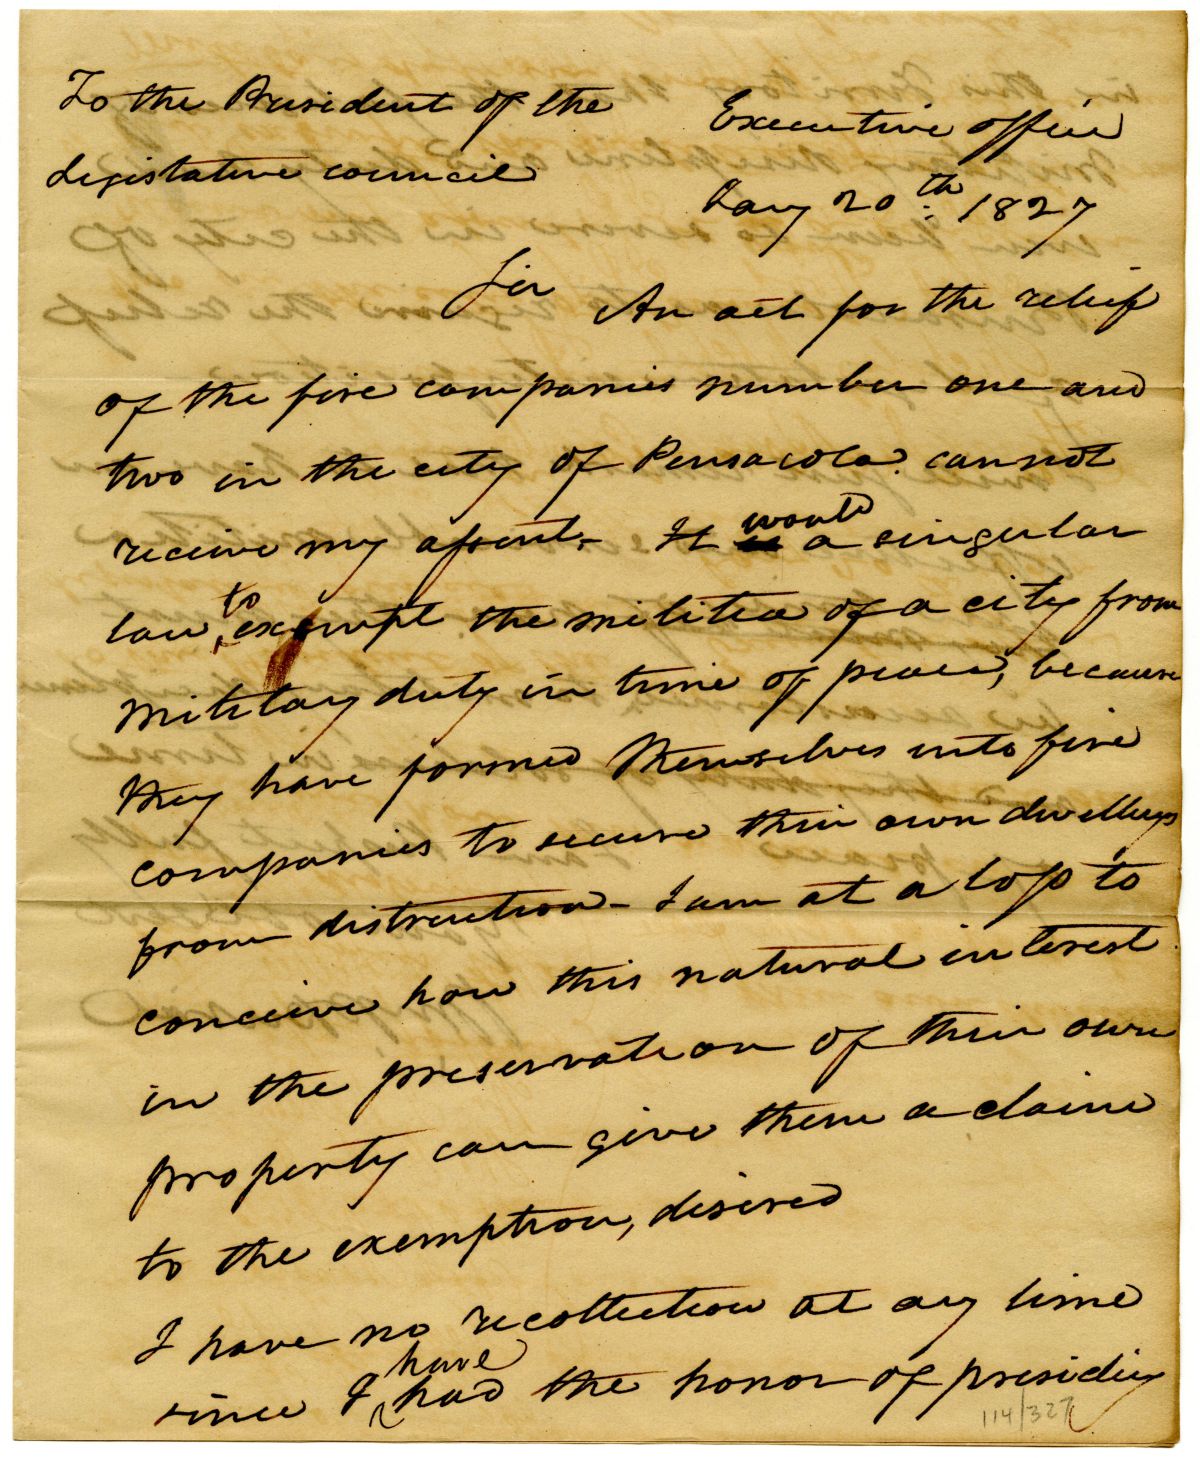 To the President of the
Legistative council
Executive office
Jany 20th 1827
Sir An act for the relief
of the fire companies number one and
two in the city of Pensacola cannot
receive my assent. It would a singular
law to exempt the militia of a city from
military duty in time of peace, because
they have formed themselves into fire
companies to secure their own dwellings
from distruction - I am at a loss to
conceive how this natural interest
in the preservation of their own
property can give them a claim
to the exemption, desired
I have no recollection at any time
since I have had the honor of presiding
114/327